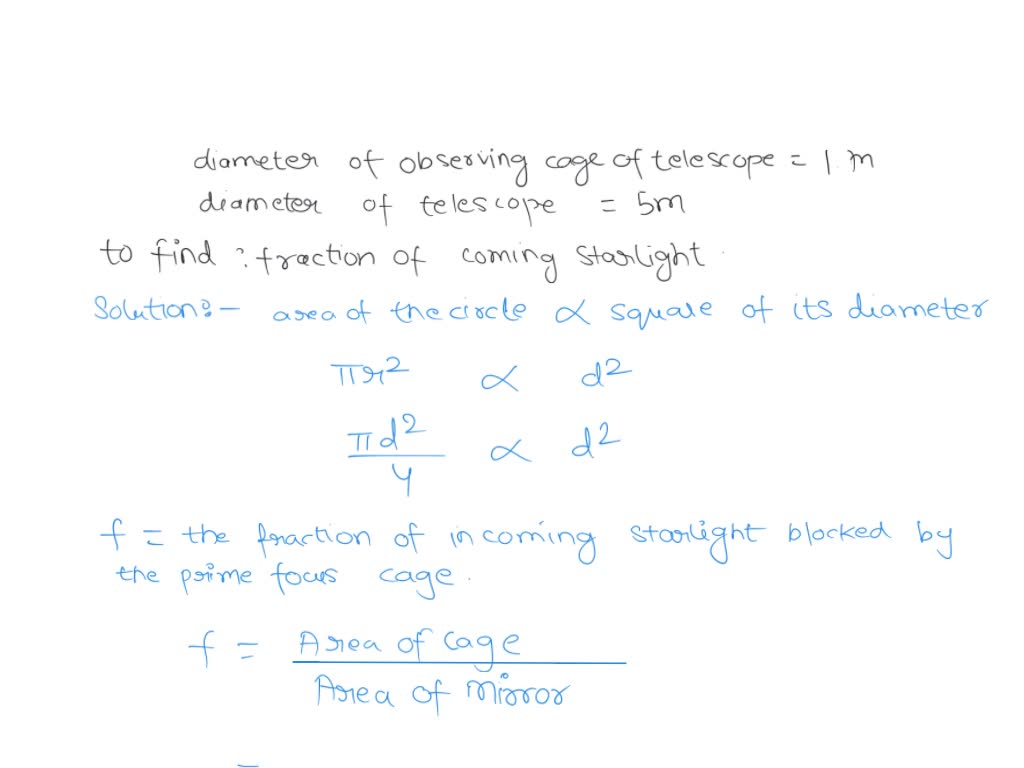 diameter of observing cage of telescope = 1 m
diameter of telescope = 5m
to find : fraction of coming starlight
Solution:- area of the circle ∝ square of its diameter
πr² ∝ d²
πd²/4 ∝ d²
f = the fraction of incoming starlight blocked by
the prime focus cage.
f = Area of cage
Area of mirror